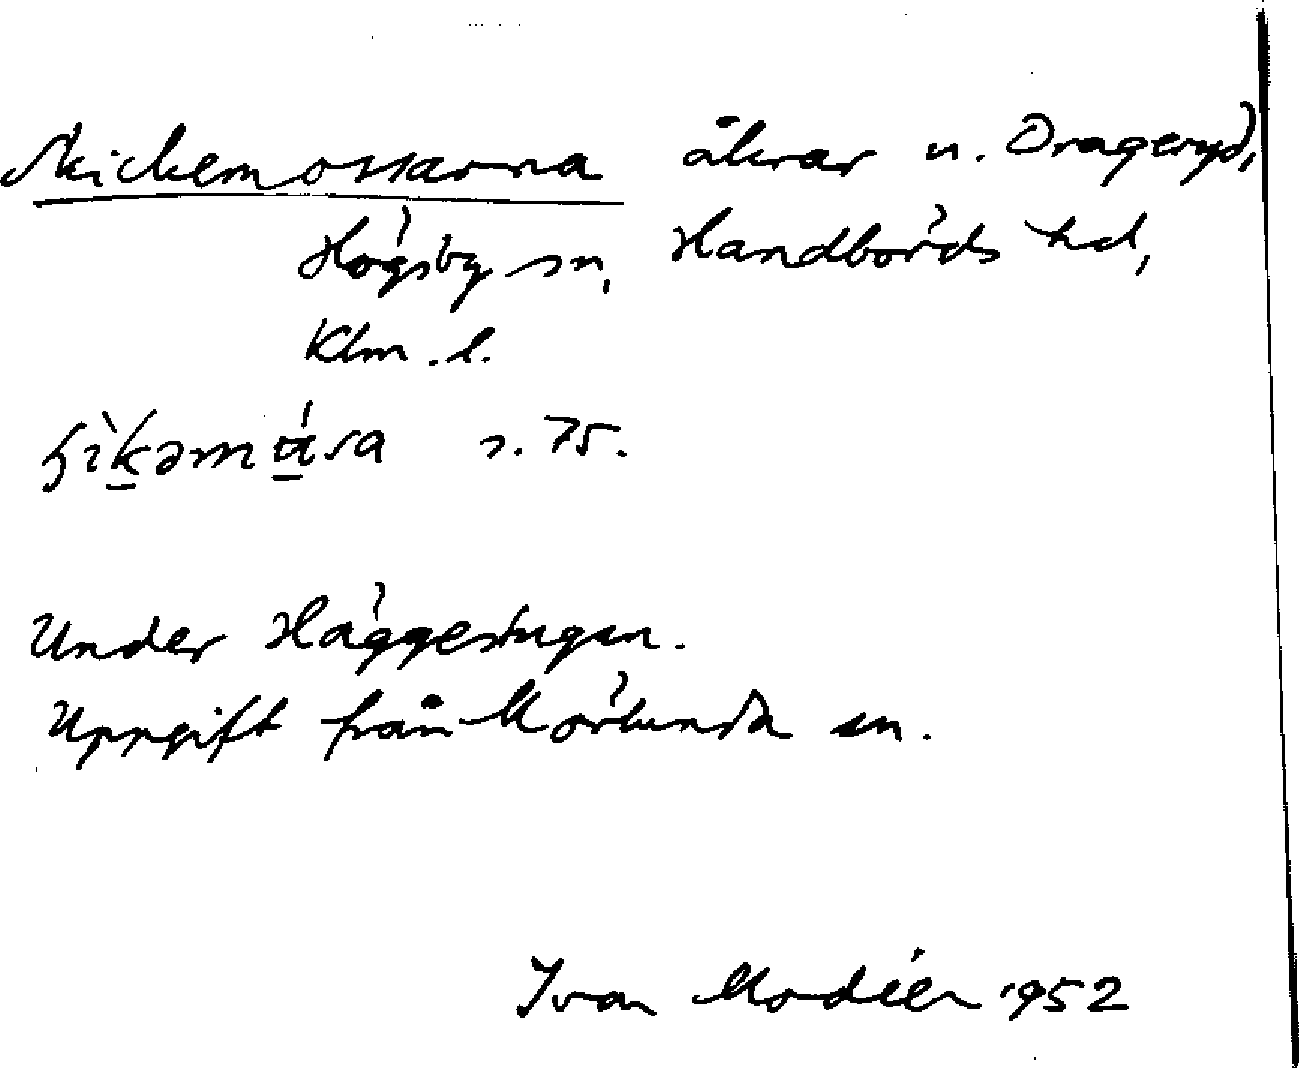 Skickemossarna åkrar u. Drageryd,
Högsby sn, Handbörds hd,
Klm. l.
s. 75.
Under Häggeringen.
Uppgift från Mörlunda sn.
Ivan Modéer 1952